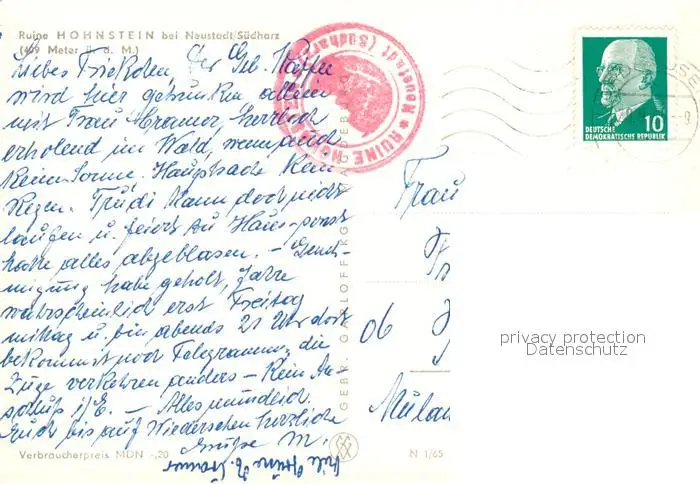 Ruine HOHNSTEIN bei Neustadt/Südharz
(409 Meter ü. d. M.)
Liebes Friedchen, der Geb. Kaffee
wird hier getrunken allein
mit Frau Cramer, herrlich
erholend im Wald, wenn auch
keine Sonne. Hauptsache kein
Regen. Trudi kann doch nicht
laufen u. feiert zu Haus sonst
hätte alles abgeblasen. – Geneh-
migung habe geholt, fahre
wahrscheinlich erst Freitag
mittag u. bin abends 21 Uhr dort
bekommst noch Telegramm, die
Züge verkehren anders – Kein An-
schluß i/E. – Alles mündlich.
Euch bis auf Wiedersehen herzliche
Grüße M.
Viele Grüße
Cramer
Verbraucherpreis MDN -,20
N 1/65
GEBR. GARLOFF KG MAGDEBURG
RUINE HOHNSTEIN * Neustadt (Südharz)
DEUTSCHE
DEMOKRATISCHE REPUBLIK
10
Frau
06
privacy protection
Datenschutz